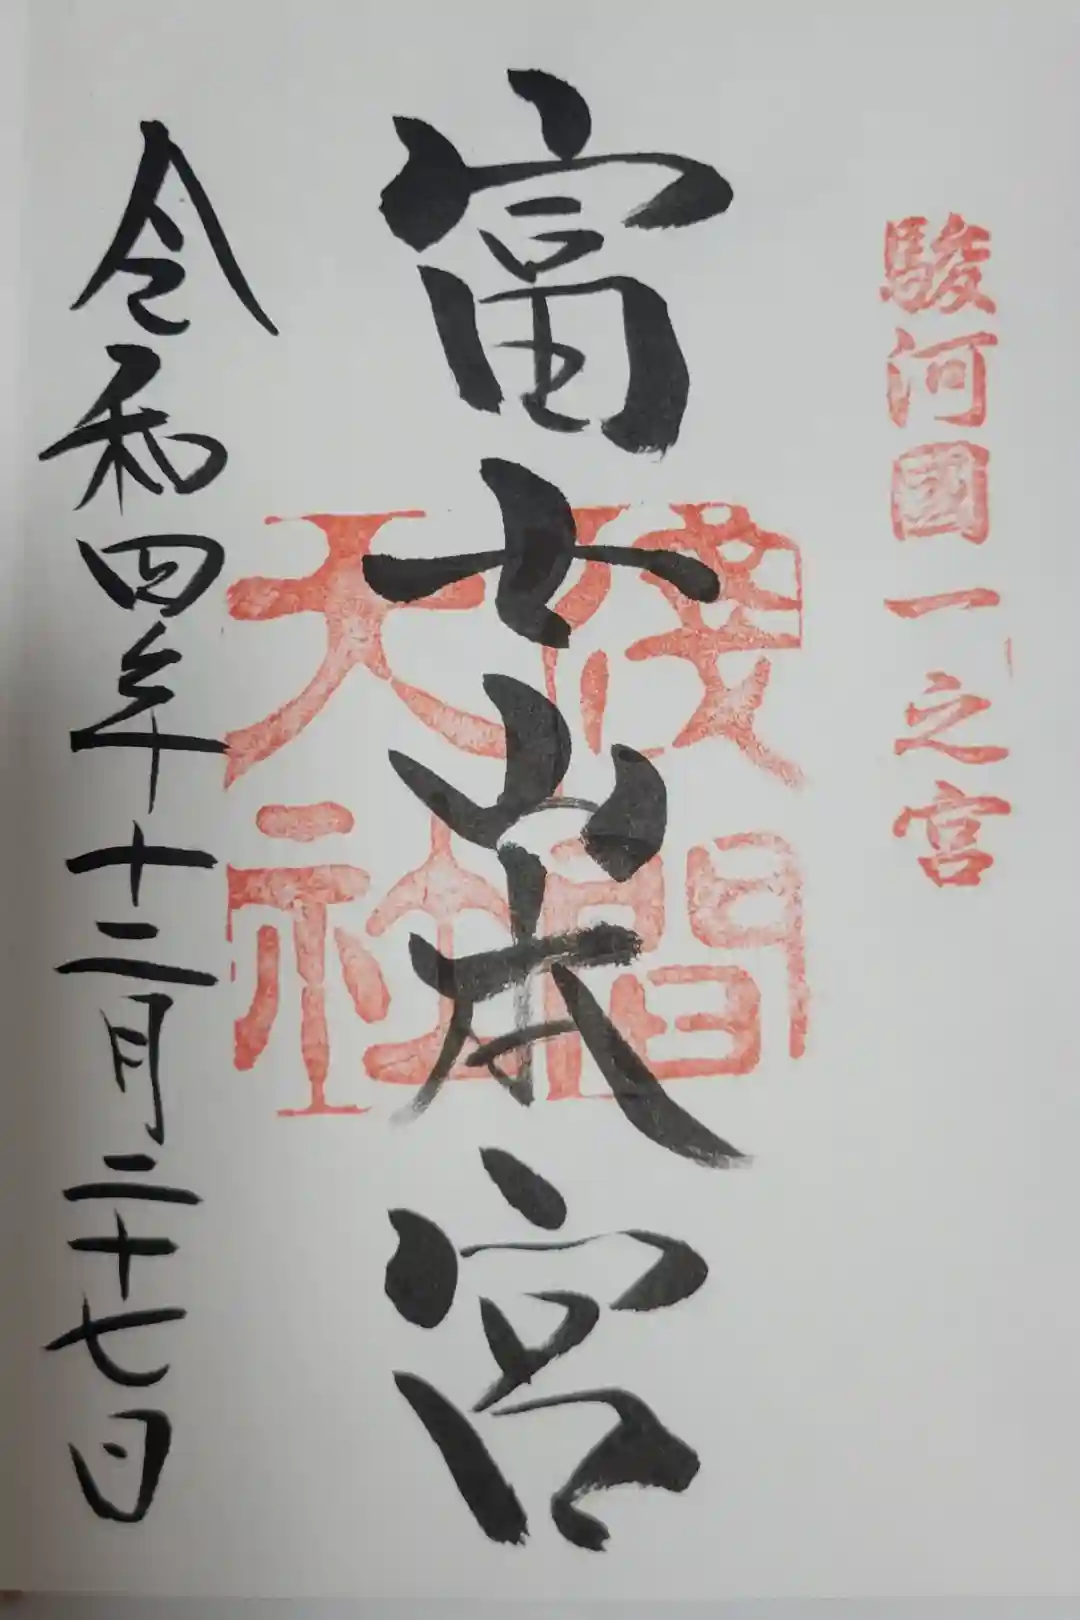 駿河國一之宮
富士山本宮
淺間大社
令和四年十二月二十七日